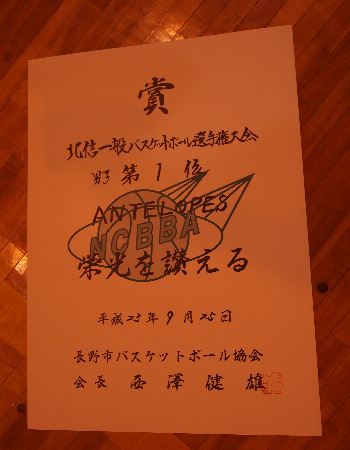 賞
北信一般バスケットボール選手権大会
男子 第1位
ANTELOPES
NCBBA
栄光を讃える
平成23年9月25日
長野市バスケットボール協会
会長 西澤健雄